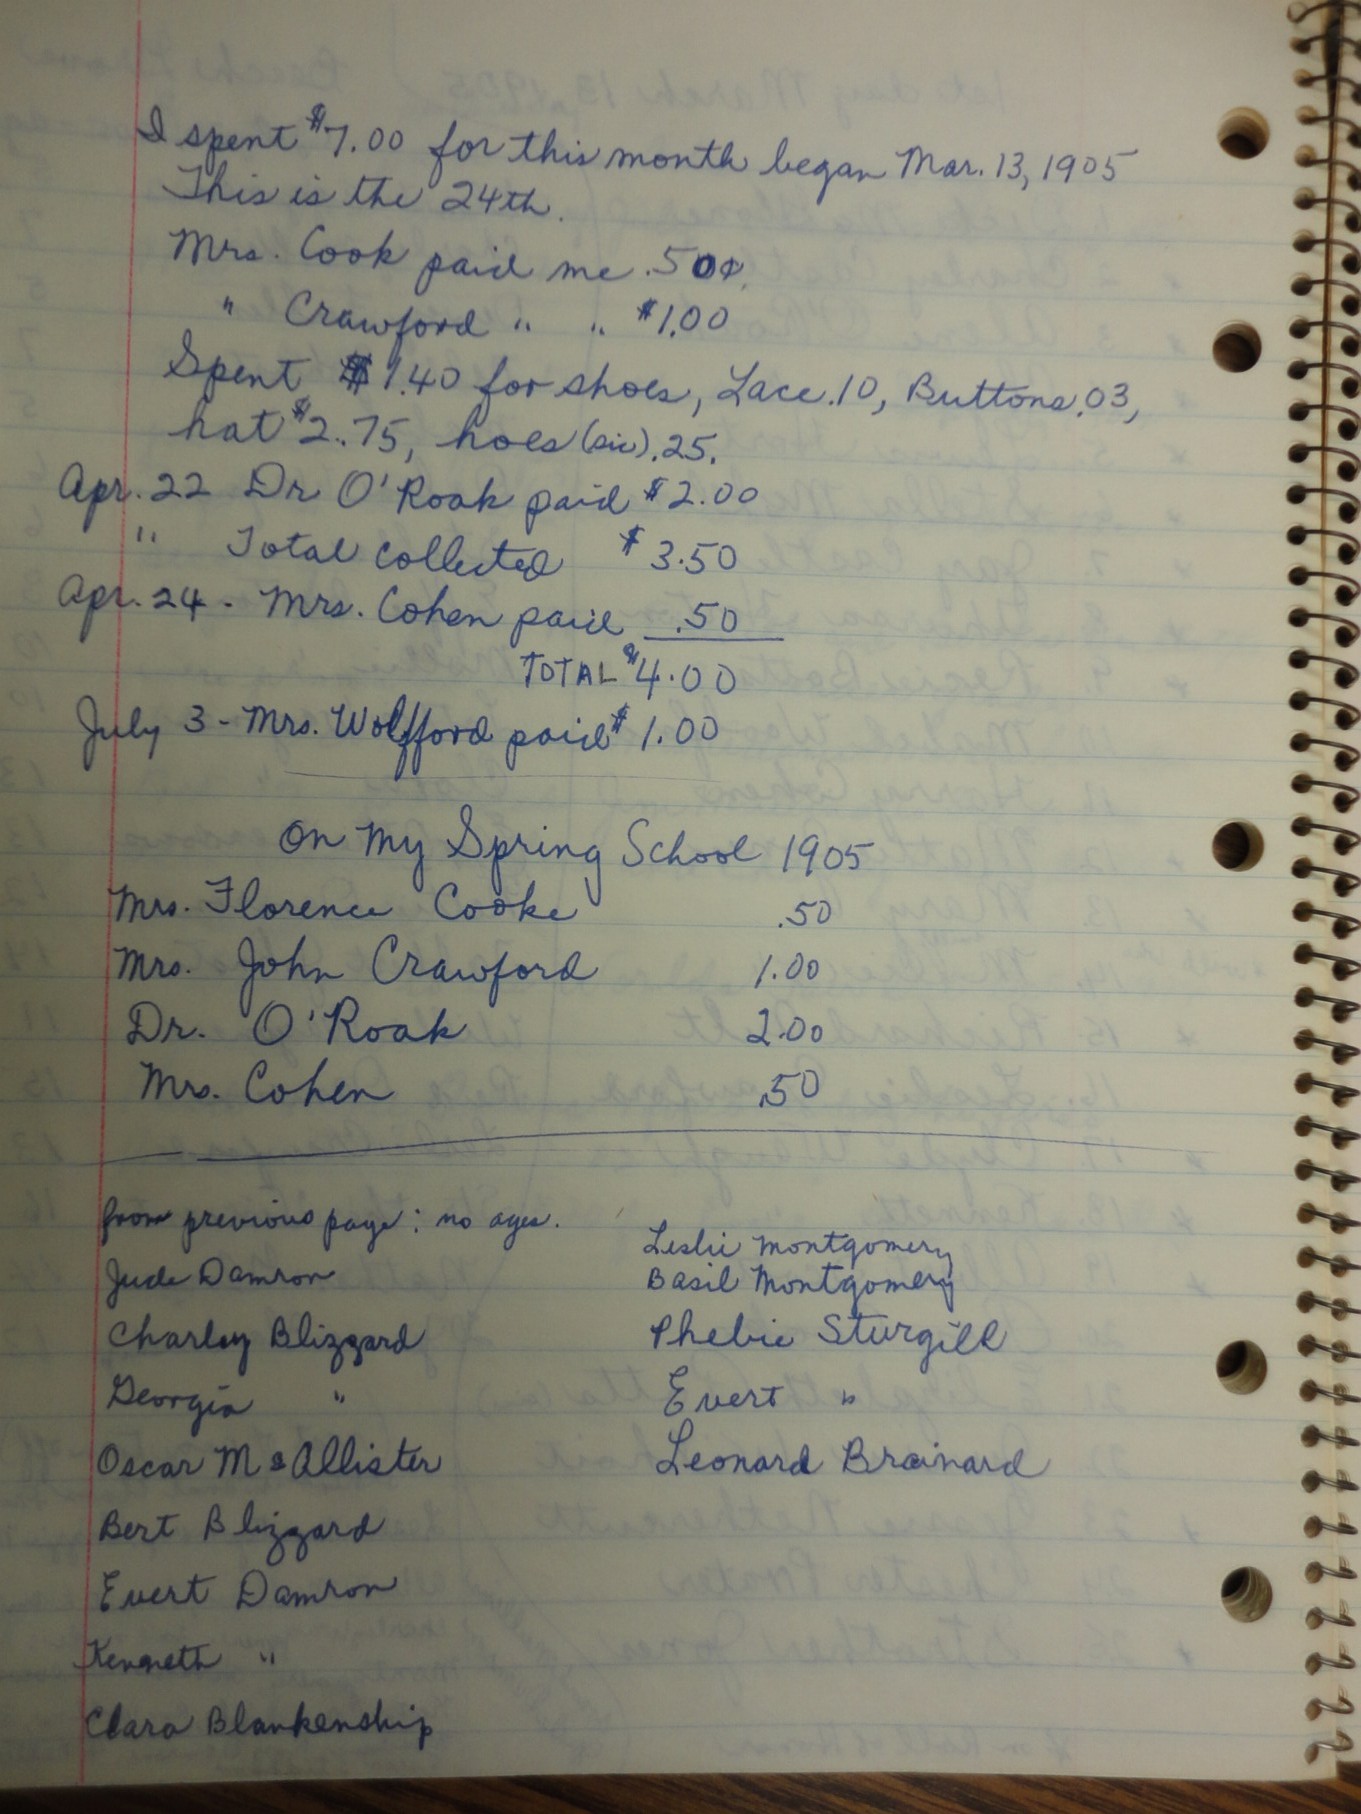 I spent $7.00 for this month began Mar. 13, 1905
This is the 24th.
Mrs. Cook paid me .50¢.
" Crawford " " $1.00
Spent $1.40 for shoes, Lace .10, Buttons .03,
hat $2.75, hoes (sic) .25.
Apr. 22 Dr O'Roak paid $2.00
" Total collected $3.50
Apr. 24 - Mrs. Cohen paid .50
TOTAL $4.00
July 3 - Mrs. Wolfford paid $1.00
On My Spring School 1905
Mrs. Florence Cooke .50
Mrs. John Crawford 1.00
Dr. O'Roak 2.00
Mrs. Cohen .50
from previous page: no ages.
Jude Damron
Charley Blizzard
Georgia "
Oscar McAllister
Bert Blizzard
Evert Damron
Kenneth "
Clara Blankenship
Leslie Montgomery
Basil Montgomery
Phebie Sturgill
Evert "
Leonard Brainard